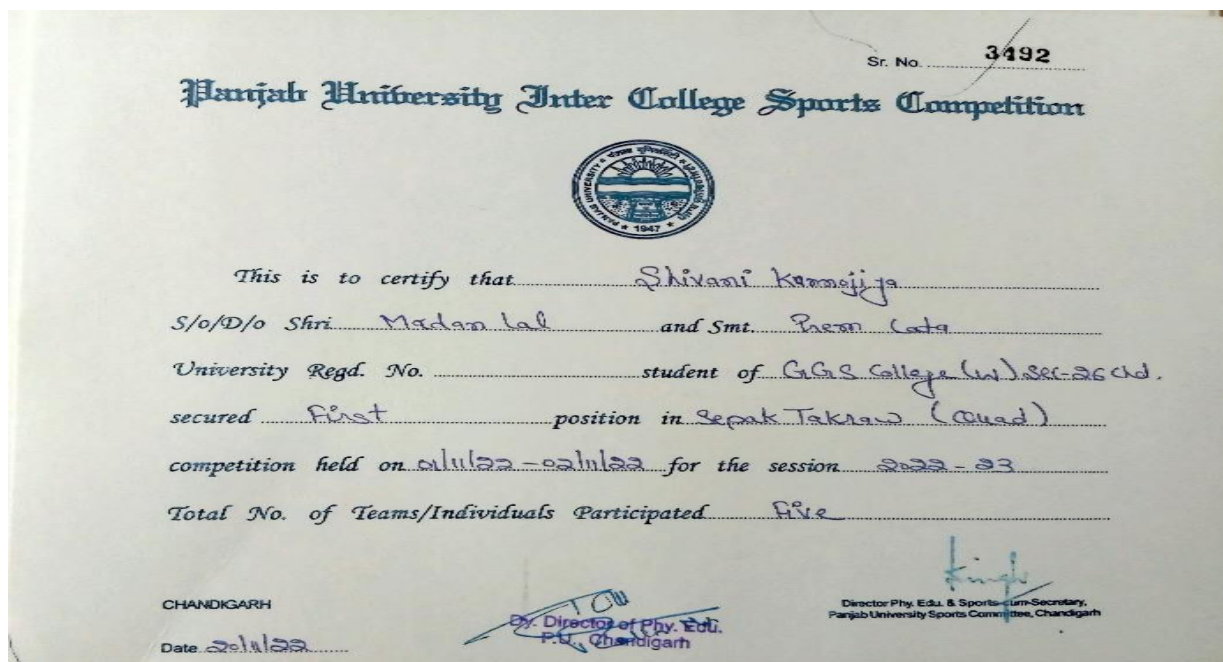 Sr. No. 3492
Panjab University Inter College Sports Competition
PANJAB UNIVERSITY
1947
This is to certify that Shivani Kannojiya
S/o/D/o Shri Madan Lal and Smt. Prem Lata
University Regd. No. student of GGS College (W) Sec-26 Chd.
secured First position in Sepak Takraw (Quad)
competition held on 01/11/22 - 02/11/22 for the session 2022 - 23
Total No. of Teams/Individuals Participated Five
CHANDIGARH
Date 20/11/22
Dy. Director of Phy. Edu.
P.U., Chandigarh
Director Phy. Edu. & Sports-cum-Secretary,
Panjab University Sports Committee, Chandigarh